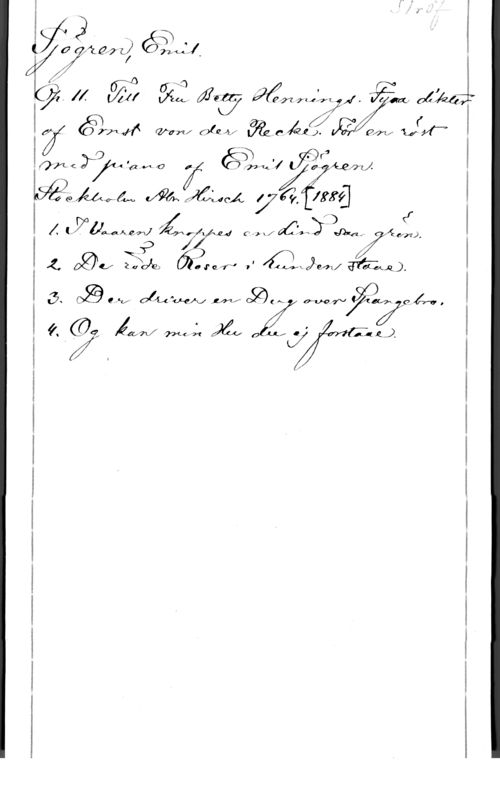 Sjögren, Emil.
Op. 11. Till Fru Betty Hennings. Fyra dikter
af Ernst von der Recke. För en röst
med piano af Emil Sjögren.
Stockholm Abr. Hirsch 1764. [1884]
1. I Vaaren knoppes en Lind saa grön.
2. De röde Roser i Lunden staae.
3. Der driver en Dug over Spangebro.
4. Og kan min Hu du ej forstaae.